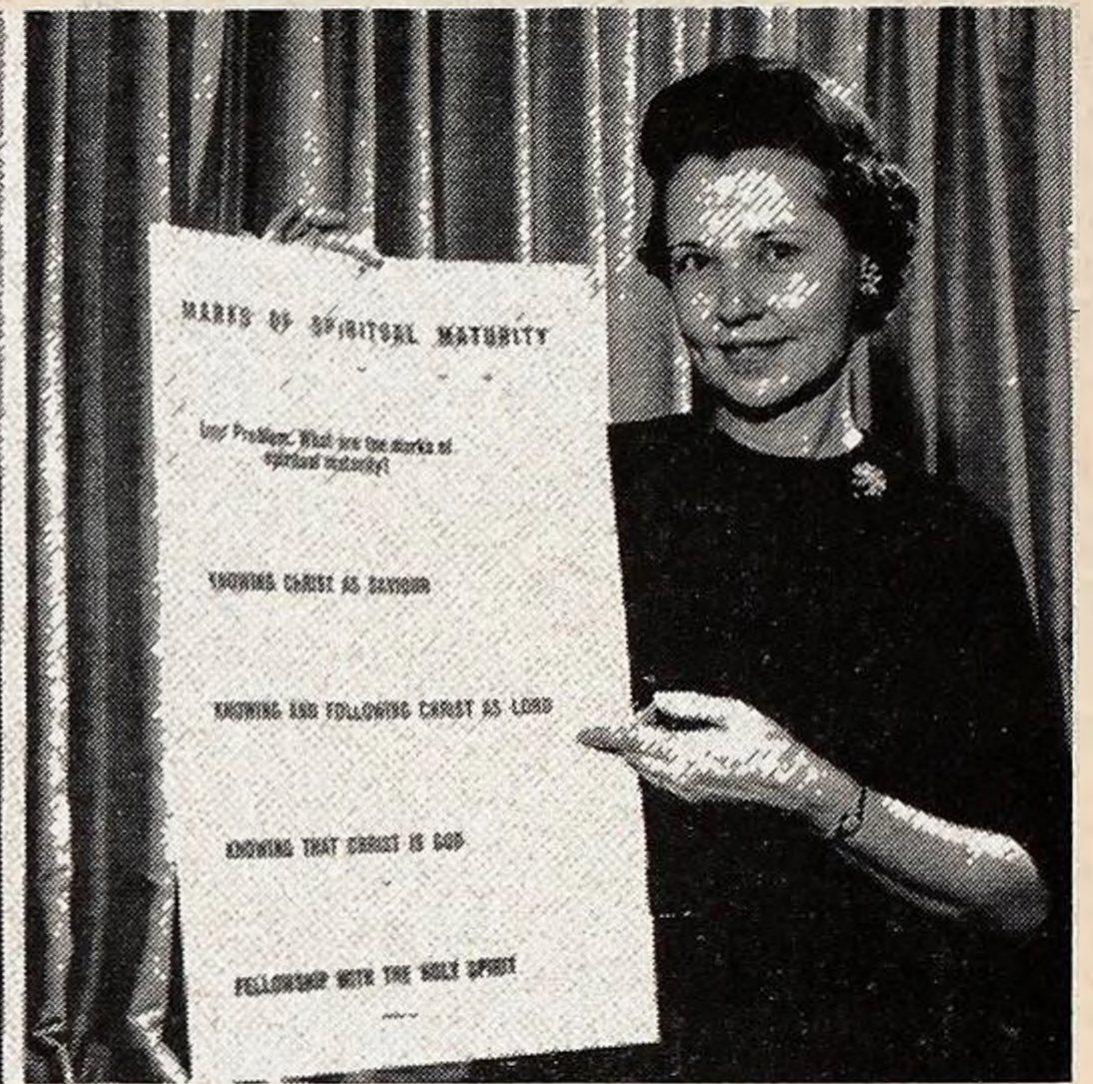 MARKS OF SPIRITUAL MATURITY
Problem: What are the marks of
spiritual maturity?
KNOWING CHRIST AS SAVIOUR
KNOWING AND FOLLOWING CHRIST AS LORD
KNOWING THAT CHRIST IS GOD
FELLOWSHIP WITH THE HOLY SPIRIT